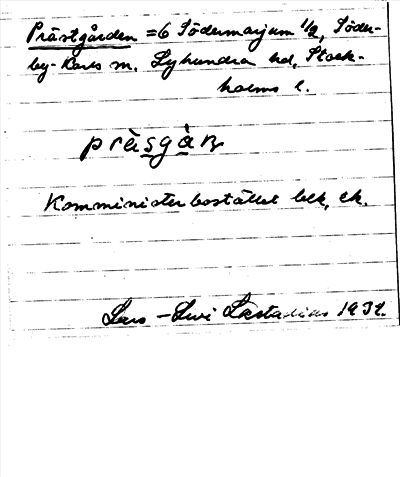 Prästgården = 6 Södermarjum 1/2, Söder-
by-Karls sn. Lyhundra hd, Stock-
holms l.
prȧsgȧṛ
Komministerbostället bek, ek.
Lars-Levi Læstadius 1931.